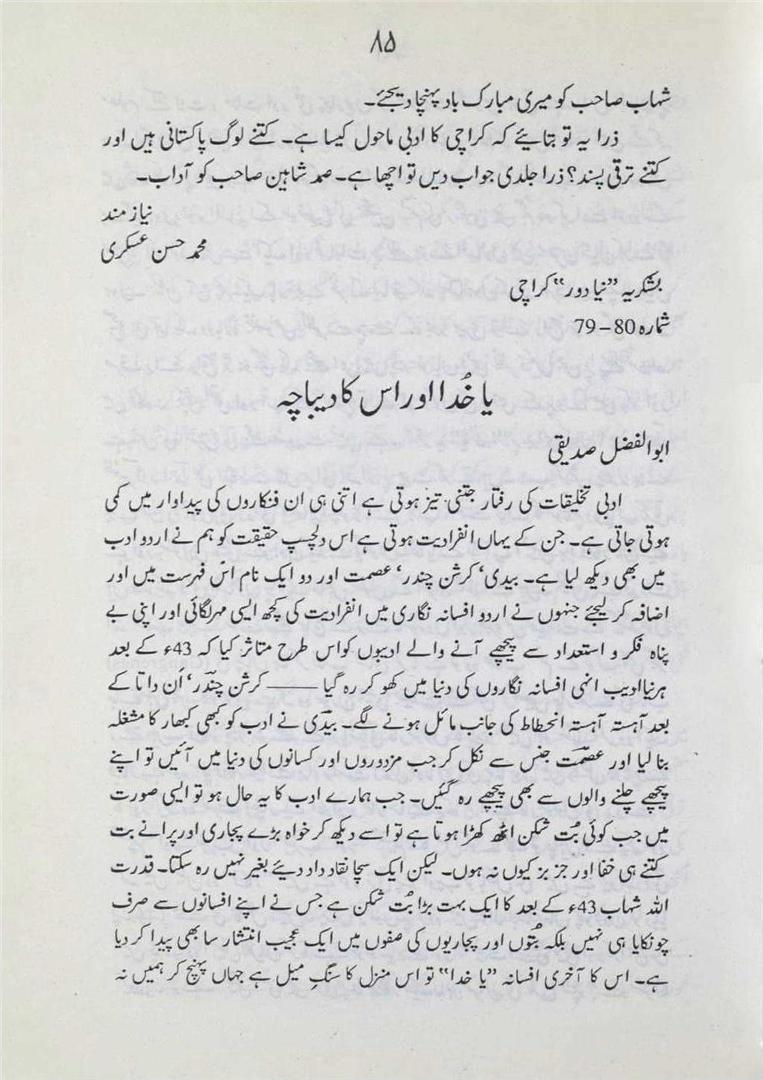 ۸۵
شہاب صاحب کو میری مبارک باد پہنچا دیجئے۔
ذرا یہ تو بتائیے کہ کراچی کا ادبی ماحول کیسا ہے۔ کتنے لوگ پاکستانی ہیں اور
کتنے ترقی پسند؟ ذرا جلدی جواب دیں تو اچھا ہے۔ صمد شاہین صاحب کو آداب۔
نیاز مند
محمد حسن عسکری
بشکریہ ”نیا دور“ کراچی
شمارہ 80–79
یا خُدا اور اس کا دیباچہ
ابوالفضل صدیقی
ادبی تخلیقات کی رفتار جتنی تیز ہوتی ہے اتنی ہی ان فنکاروں کی پیداوار میں کمی
ہوتی جاتی ہے۔ جن کے یہاں انفرادیت ہوتی ہے اس دلچسپ حقیقت کو ہم نے اردو ادب
میں بھی دیکھ لیا ہے۔ بیدی‘ کرشن چندر‘ عصمت اور دو ایک نام اس فہرست میں اور
اضافہ کر لیجئے جنہوں نے اردو افسانہ نگاری میں انفرادیت کی کچھ ایسی مہر لگائی اور اپنی بے
پناہ فکر و استعداد سے پیچھے آنے والے ادیبوں کو اس طرح متاثر کیا کہ 43ء کے بعد
ہر نیا ادیب انہی افسانہ نگاروں کی دنیا میں کھو کر رہ گیا ——— کرشن چندر‘ ان داتا کے
بعد آہستہ آہستہ انحطاط کی جانب مائل ہونے لگے۔ بیدی نے ادب کو کبھی کبھار کا مشغلہ
بنا لیا اور عصمت جنس سے نکل کر جب مزدوروں اور کسانوں کی دنیا میں آئیں تو اپنے
پیچھے چلنے والوں سے بھی پیچھے رہ گئیں۔ جب ہمارے ادب کا یہ حال ہو تو ایسی صورت
میں جب کوئی بُت شکن اٹھ کھڑا ہوتا ہے تو اسے دیکھ کر خواہ بڑے پجاری اور پرانے بت
کتنے ہی خفا اور جز بز کیوں نہ ہوں۔ لیکن ایک سچا نقاد داد دیئے بغیر نہیں رہ سکتا۔ قدرت
اللہ شہاب 43ء کے بعد کا ایک بہت بڑا بُت شکن ہے جس نے اپنے افسانوں سے صرف
چونکایا ہی نہیں بلکہ بُتوں اور پجاریوں کی صفوں میں ایک عجیب انتشار سا بھی پیدا کر دیا
ہے۔ اس کا آخری افسانہ ”یا خدا“ تو اس منزل کا سنگِ میل ہے جہاں پہنچ کر ہمیں نہ